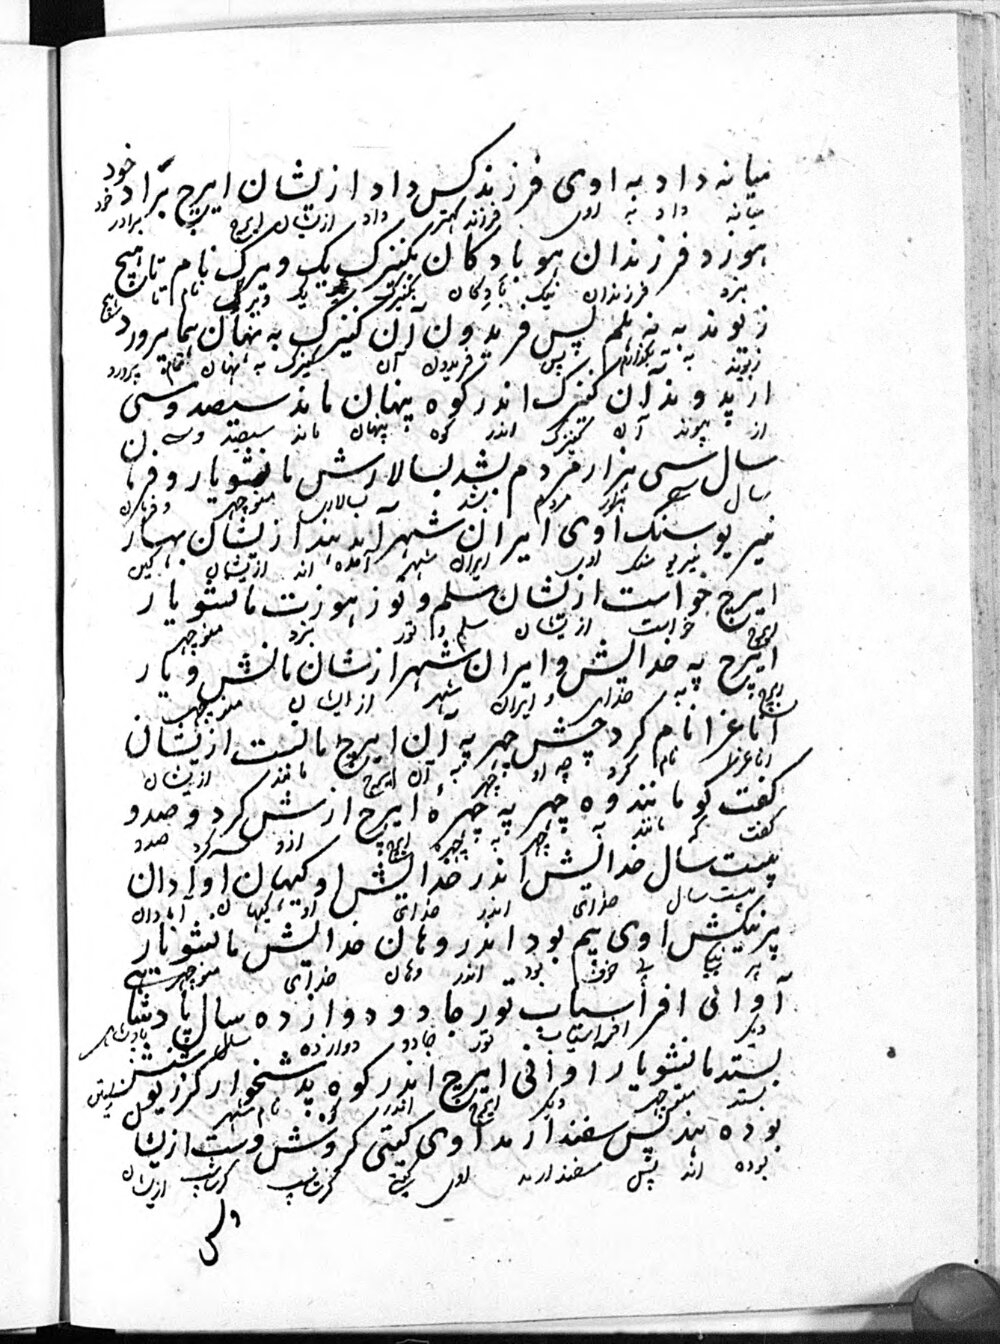 میانه داد به اوی فرزند کس داد ازیشان ایرج براد خود
میانه داد به اوی فرزند کهتری داد ازیشان ایرج برادر خود
هوزد فرزندان هو بادکان کنیزک یک ویرک نام تا هیچ
بزد فرزندان نیک بادکان کنیزک یک ویرک نام تا هیچ
زیوند به نه هلم پس فریدون آن کنیزک به نهان هما پرورد
زیوند به بگذارم پس فریدون آن کنیزک به نهان تمام پرورد
از پیوند آن کنیزک اندر کوه پنهان ماند سیصد و سی
از پیوند آن کنیزک اندر کوه پنهان ماند سیصد و سی
سال سی هزار مردم بشد بسالارش مانشویار و فرمان
سال هزار مردم بشد بسالاری منوچهر و فرمان
نیریوسنک اوی ایران شهر آمد هند ازیشان بهار
نیریوسنک اوی ایران شهر آمده اند ازیشان کین
ایرج خواست ازیشان سلم و توز هوزت مانشویار
ایرج خواست ازیشان سلم و تور بزد منوچهر
ایرج په خدایش و ایران شهر ازشان مانش ویار
ایرج به خدای و ایران شهر از ایشان منوچهر
اناغرا نام کرد چش چهر په آن ایرج مانست ازیشان
اناغرا نام کرد چه او چهر به آن ایرج مانند ازیشان
گفت کو مانند وه چهر په چهره ایرج ازش کرد و صد و
گفت که مانند چهر به چهره ایرج ازو کرد صد و
بیست سال خدایش اندر خدایش او کیهان آوادان
بیست سال خدائی اندر خدائی او کیهان آبادان
پرنیکش اوی بیم بود اندر وهان خدایش مانشویار
پر نیک بی خوف بود اندر وهان خدای منوچهر
آوانی افراسیاب تور جادو دوازده سال پادشاهی
دیگر افراسیاب تور جادو دوازده سال پادشاهی
بستد مانشویار اوانی ایرج اندر کوه پدشخوارگر زیونشن
بستد منوچهر دیگر ایرج اندر کوه نام شهر
بوده هند پس سفندارمد اوی گیتی کروش وست ازیشان
بوده اند پس سفندارمد اوی گیتی گرشاسب ازیشان
ولس